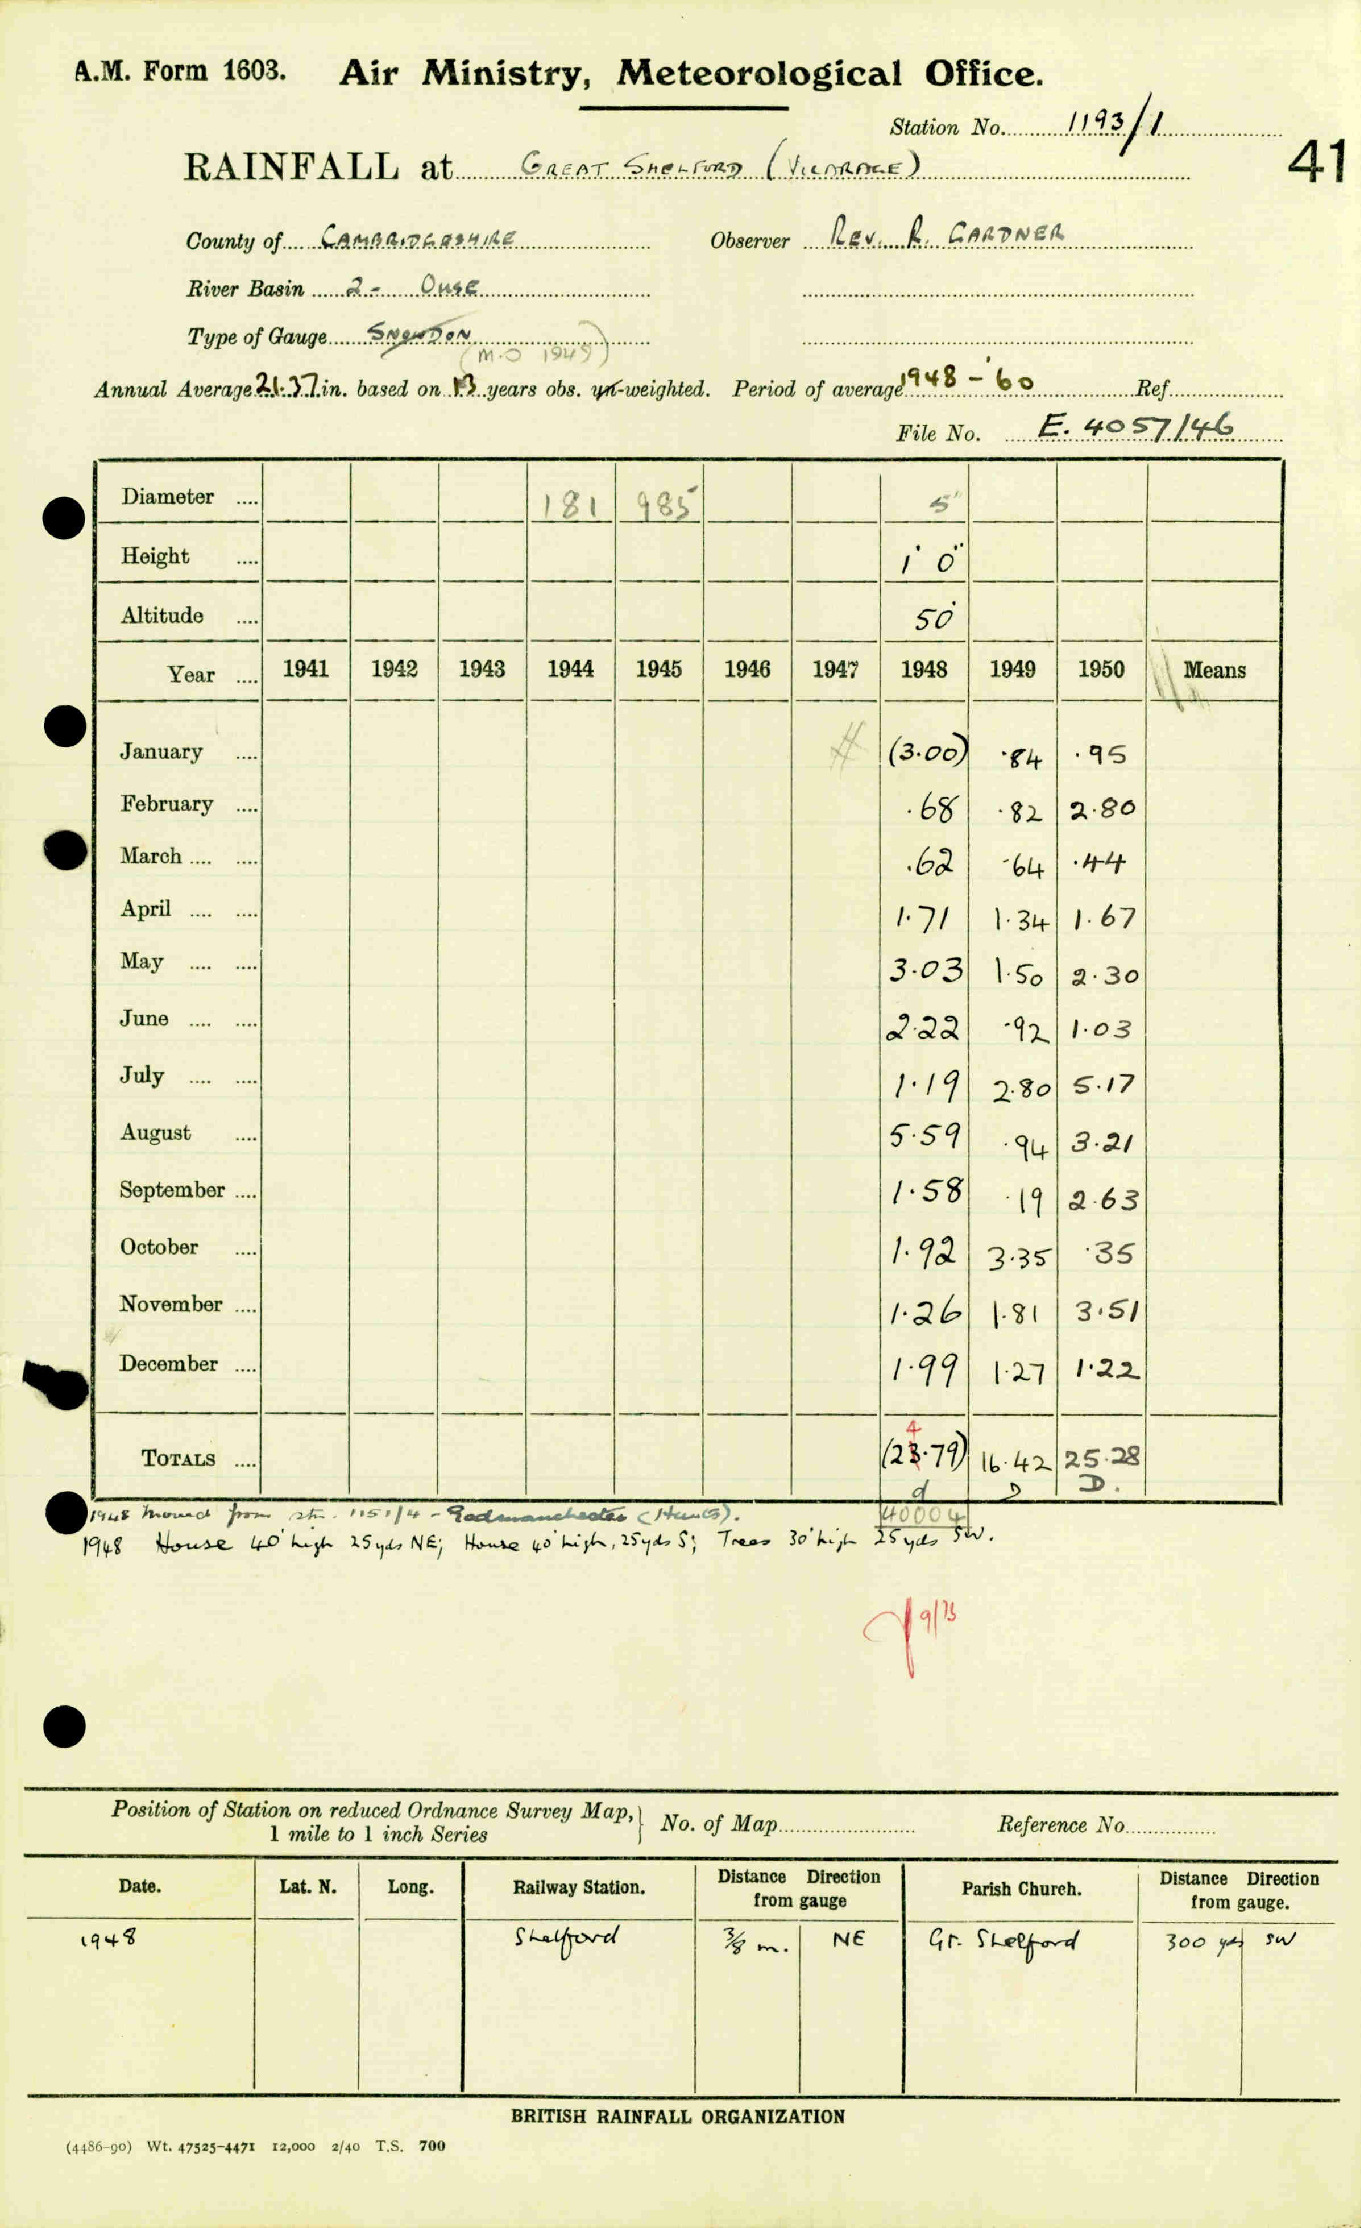 A.M. Form 1603. Air Ministry, Meteorological Office.
Station No. 1193/1
41
RAINFALL at GREAT SHELFORD (VICARAGE)
County of CAMBRIDGESHIRE Observer REV. R. GARDNER
River Basin 2- OUSE
Type of Gauge SNOWDON
(M.O 1949)
Annual Average 21.37 in. based on 13 years obs. un-weighted. Period of average 1948 - '60 Ref.
File No. E. 4057/46
Diameter .... 181 985 5"
Height .... 1' 0"
Altitude .... 50'
Year .... 1941 1942 1943 1944 1945 1946 1947 1948 1949 1950 Means
January .... (3.00) .84 .95
February .... .68 .82 2.80
March .... .... .62 .64 .44
April .... .... 1.71 1.34 1.67
May .... .... 3.03 1.50 2.30
June .... .... 2.22 .92 1.03
July .... .... 1.19 2.80 5.17
August .... 5.59 .94 3.21
September .... 1.58 .19 2.63
October .... 1.92 3.35 .35
November .... 1.26 1.81 3.51
December .... 1.99 1.27 1.22
4
TOTALS .... (23.79) 16.42 25.28
d D D.
1948 moved from stn. 1151/4 - Godmanchester (Hunts). 40004
1948 House 40' high 25yds NE; House 40' high, 25yds S; Trees 30' high 25yds SW.
9/73
Position of Station on reduced Ordnance Survey Map, } No. of Map Reference No.
1 mile to 1 inch Series
Date. Lat. N. Long. Railway Station. Distance Direction from gauge Parish Church. Distance Direction from gauge.
1948 Shelford 3/8 m. NE Gt. Shelford 300 yds SW
BRITISH RAINFALL ORGANIZATION
(4486-90) Wt. 47525-4471 12,000 2/40 T.S. 700